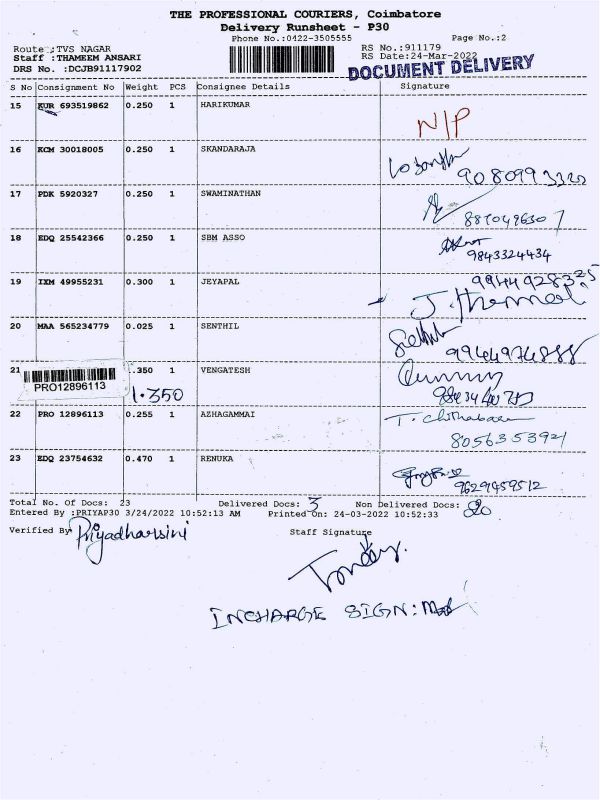 THE PROFESSIONAL COURIERS, Coimbatore
Delivery Runsheet - P30
Phone No.:0422-3505555 Page No.:2
Route :TVS NAGAR RS No.:911179
Staff :THAMEEM ANSARI RS Date:24-Mar-2022
DRS No. :DCJB91117902 DOCUMENT DELIVERY
S No Consignment No Weight PCS Consignee Details Signature
15 EUR 693519862 0.250 1 HARIKUMAR
N/P
16 KCM 30018005 0.250 1 SKANDARAJA
9080993320
17 PDK 5920327 0.250 1 SWAMINATHAN
8870496307
18 EDQ 25542366 0.250 1 SBM ASSO
9843324434
19 IXM 49955231 0.300 1 JEYAPAL
9944928325
20 MAA 565234779 0.025 1 SENTHIL
21 .350 1 VENGATESH
PRO12896113 1.350
22 PRO 12896113 0.255 1 AZHAGAMMAI
8056353921
23 EDQ 23754632 0.470 1 RENUKA
9629459512
Total No. Of Docs: 23 Delivered Docs: 3 Non Delivered Docs: 20
Entered By :PRIYAP30 3/24/2022 10:52:13 AM Printed On: 24-03-2022 10:52:33
Verified By Priyadharsini Staff Signature
INCHARGE SIGN: